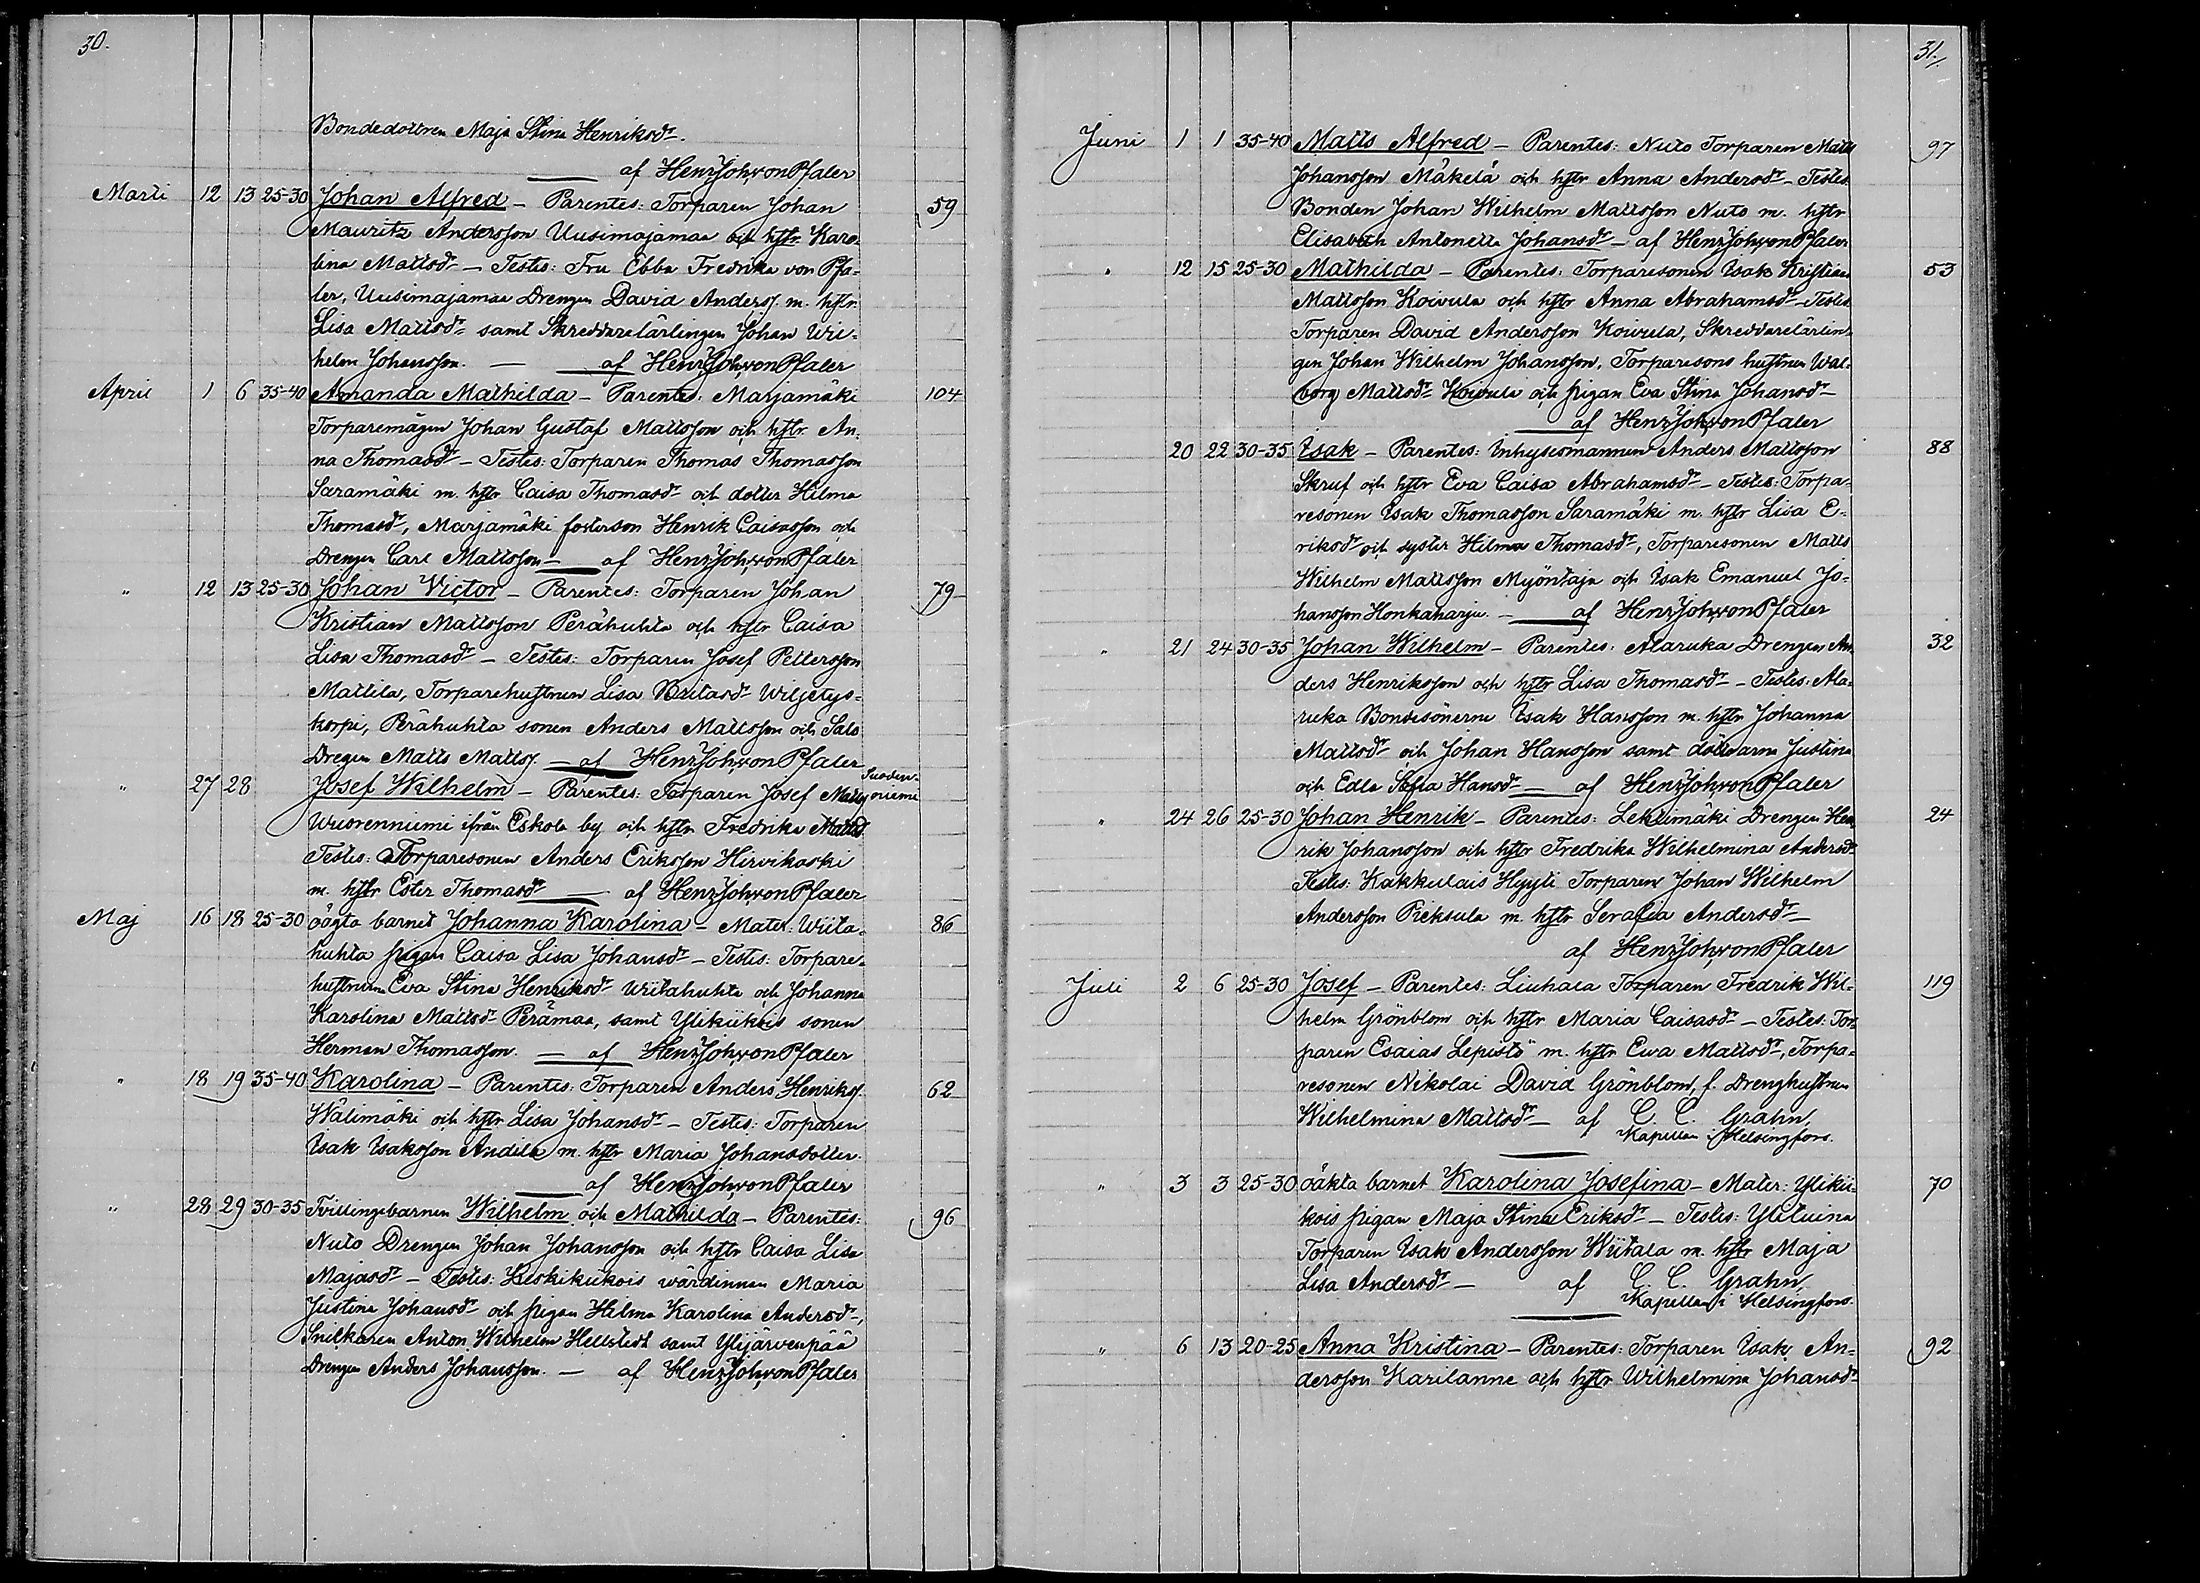 30.
Bondedottren Maja Stina Henriksdr
af Henr. Joh. von Pfaler
Marti 12 13 25-30 Johan Alfred - Parentes: Torparen Johan 59
Mauritz Andersson Uusimajamaa och hstr Karo-
lina Mattsdr - Testes: Fru Ebba Fredrika von Pfa-
ler, Uusimajamaa Drengen David Anderss. m. hstr
Lisa Mattsdr samt Skreddarelärlingen Johan Wil-
helm Johansson. - af Henr. Joh. von Pfaler
April 1 6 35-40 Amanda Mathilda - Parentes: Marjamäki 104
Torparemågen Johan Gustaf Mattsson och hstr An-
na Thomasdr - Testes: Torparen Thomas Thomasson
Saramäki m. hstr Caisa Thomasdr och dotter Hilma
Thomasdr, Marjamäki fosterson Henrik Caisasson och
Drengen Carl Mattsson - af Henr. Joh. von Pfaler
" 12 13 25-30 Johan Victor - Parentes: Torparen Johan 79
Kristian Mattsson Perähuhta och hstr Caisa
Lisa Thomasdr - Testes: Torparen Josef Pettersson
Mattila, Torparehustrun Lisa Britasdr Wiljetys-
korpi, Perähuhta sonen Anders Mattsson och Salo
Dregen Matts Mattss. - af Henr. Joh. von Pfaler
" 27 28 Josef Wilhelm - Parentes: Torparen Josef Matts.
Wuorenniemi ifrån Eskola by och hstr Fredrika Mattsd.
Testes: Torparesonen Anders Eriksson Hirvikoski
m. hstr Ester Thomasdr - af Henr. Joh. von Pfaler
Maj 16 18 25-30 oägta barnet Johanna Karolina - Mater: Wiita- 86
huhta pigan Caisa Lisa Johansdr - Testes: Torpare-
hustrun Eva Stina Henriksdr Wiitahuhta och Johanna
Karolina Mattsdr Perämaa, samt Ylikiikois sonen
Herman Thomasson. - af Henr. Joh. von Pfaler
" 18 19 35-40 Karolina - Parentes: Torparen Anders Henrikss. 62
Wälimäki och hstr Lisa Johansdr - Testes: Torparen
Isak Isaksson Andila m. hstr Maria Johansdotter.
af Henr. Joh. von Pfaler
" 28 29 30-35 Tvillingebarnen Wilhelm och Mathilda - Parentes: 96
Nuto Drengen Johan Johansson och hstr Caisa Lisa
Majasdr - Testes: Keskikiikois wärdinnan Maria
Justina Johansdr och pigan Hilma Karolina Andersdr,
Snickaren Anton Wilhelm Hellstedt samt Ylijärvenpää
Drengen Anders Johansson. - af Henr. Joh. von Pfaler
31.
Juni 1 1 35-40 Matts Alfred - Parentes: Nuto Torparen Matts 97
Johansson Mäkelä och hstr Anna Andersdr - Testes
Bonden Johan Wilhelm Mattsson Nuto m. hstr
Elisabeth Antonetta Johansdr - af Henr. Joh. von Pfaler
" 12 15 25-30 Mathilda - Parentes: Torparesonen Isak Kristian 53
Mattsson Koivula och hstr Anna Abrahamsdr - Testes
Torparen David Andersson Koivula, Skreddarelärlin-
gen Johan Wilhelm Johansson, Torparesons hustrun Wal-
borg Mattsdr Koivula och pigan Eva Stina Johansdr -
af Henr. Joh. von Pfaler
20 22 30-35 Isak - Parentes: Inhysesmannen Anders Mattsson 88
Skruf och hstr Eva Caisa Abrahamsdr - Testes: Torpa-
resonen Isak Thomasson Saramäki m. hstr Lisa E-
riksdr och syster Hilma Thomasdr, Torparesonen Matts
Wilhelm Mattsson Myöntaja och Isak Emanuel Jo-
hansson Honkaharju. - af Henr. Joh. von Pfaler
" 21 24 30-35 Johan Wilhelm - Parentes: Alaruka Drengen An- 32
ders Henriksson och hstr Lisa Thomasdr - Testes: Ala-
ruka Bondesönerne Isak Hansson m. hstr Johanna
Mattsdr och Johan Hansson samt döttrarna Justina
och Edla Sofia Hansdr - af Henr. Joh. von Pfaler
" 24 26 25-30 Johan Henrik - Parentes: Lehtimäki Drengen Hen- 24
rik Johansson och hstr Fredrika Wilhelmina Andersdr
Testes: Kakkulais Hyyti Torparen Johan Wilhelm
Andersson Pieksula m. hstr Serafia Andersdr -
af Henr. Joh. von Pfaler
Juli 2 6 25-30 Josef - Parentes: Liuhala Torparen Fredrik Wil- 119
helm Grönblom och hstr Maria Caisasdr - Testes: Tor-
paren Esaias Lepistö m. hstr Ewa Mattsdr, Torpa-
resonen Nikolai David Grönblom, f. Drenghustrun
Wilhelmina Mattsdr - af C. C. Grahn,
Kapellan i Helsingfors.
" 3 3 25-30 oäkta barnet Karolina Josefina - Mater: Ylikii- 70
kois pigan Maja Stina Eriksdr - Testes: Ylituina
Torparen Isak Andersson Wiitala m. hstr Maja
Lisa Andersdr - af C. C. Grahn,
Kapellan i Helsingfors.
" 6 13 20-25 Anna Kristina - Parentes: Torparen Isak An- 92
dersson Karilanne och hstr Wilhelmina Johansdr